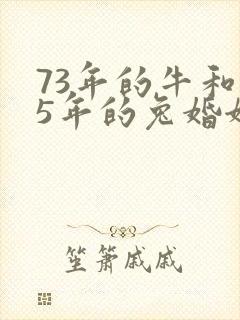 73年的牛和
5年的兔婚姻
笙箫戚戚